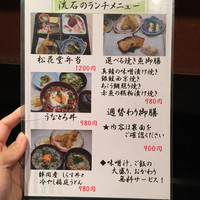 流石のランチメニュー
松花堂弁当
1200円
選べる焼き魚御膳
真鯖の味噌漬け焼き
銀鮭西京焼き
あこう鯛粕漬け
赤魚の粕漬け焼き
980円
うなとろ丼
980円
週替わり御膳
★内容は裏面を
ご確認ください
900円
静岡産しらす丼と
冷やし稲庭うどん
980円
◆味噌汁、ご飯の
大盛り、おかわり
無料サービス！